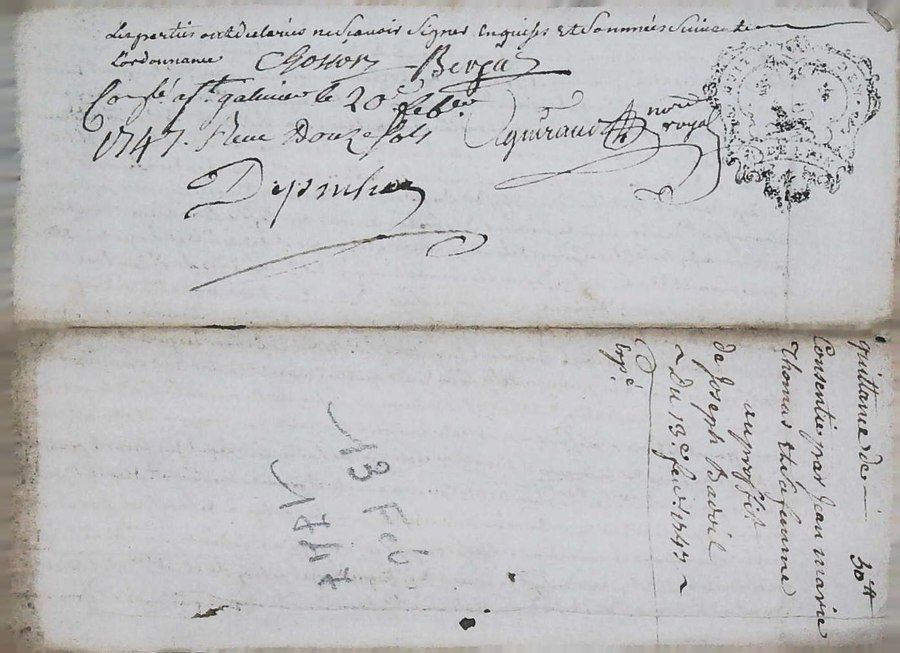 Les parties ont declarées ne sçavoir signer enquises et sommées suivant
L'ordonnance Chosson Berga
Conllé a St galmier le 20e feb er
1747. Receu Douze sols
Aguiraud no re royal
quittance de 30tt
Consentie par Jean marie
thomas et sa femme
au proffit
de Joseph
Du 13e fevr. 1747
Expé
13 Feb
1747